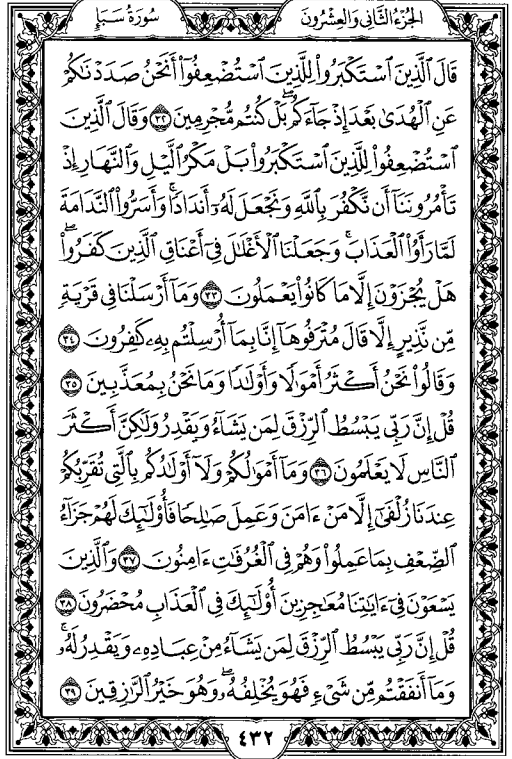 سُورَةُ سَبَإٍ
الجُزْءُ الثَّانِي وَالعِشْرُونَ
قَالَ ٱلَّذِينَ ٱسْتَكْبَرُوا۟ لِلَّذِينَ ٱسْتُضْعِفُوٓا۟ أَنَحْنُ صَدَدْنَٰكُمْ
عَنِ ٱلْهُدَىٰ بَعْدَ إِذْ جَآءَكُم ۖ بَلْ كُنتُم مُّجْرِمِينَ ٣٢ وَقَالَ ٱلَّذِينَ
ٱسْتُضْعِفُوا۟ لِلَّذِينَ ٱسْتَكْبَرُوا۟ بَلْ مَكْرُ ٱلَّيْلِ وَٱلنَّهَارِ إِذْ
تَأْمُرُونَنَآ أَن نَّكْفُرَ بِٱللَّهِ وَنَجْعَلَ لَهُۥٓ أَندَادًا ۚ وَأَسَرُّوا۟ ٱلنَّدَامَةَ
لَمَّا رَأَوُا۟ ٱلْعَذَابَ ۚ وَجَعَلْنَا ٱلْأَغْلَٰلَ فِىٓ أَعْنَاقِ ٱلَّذِينَ كَفَرُوا۟ ۖ
هَلْ يُجْزَوْنَ إِلَّا مَا كَانُوا۟ يَعْمَلُونَ ٣٣ وَمَآ أَرْسَلْنَا فِى قَرْيَةٍ
مِّن نَّذِيرٍ إِلَّا قَالَ مُتْرَفُوهَآ إِنَّا بِمَآ أُرْسِلْتُم بِهِۦ كَٰفِرُونَ ٣٤
وَقَالُوا۟ نَحْنُ أَكْثَرُ أَمْوَٰلًا وَأَوْلَٰدًا وَمَا نَحْنُ بِمُعَذَّبِينَ ٣٥
قُلْ إِنَّ رَبِّى يَبْسُطُ ٱلرِّزْقَ لِمَن يَشَآءُ وَيَقْدِرُ وَلَٰكِنَّ أَكْثَرَ
ٱلنَّاسِ لَا يَعْلَمُونَ ٣٦ وَمَآ أَمْوَٰلُكُمْ وَلَآ أَوْلَٰدُكُم بِٱلَّتِى تُقَرِّبُكُمْ
عِندَنَا زُلْفَىٰٓ إِلَّا مَنْ ءَامَنَ وَعَمِلَ صَٰلِحًا فَأُو۟لَٰٓئِكَ لَهُمْ جَزَآءُ
ٱلضِّعْفِ بِمَا عَمِلُوا۟ وَهُمْ فِى ٱلْغُرُفَٰتِ ءَامِنُونَ ٣٧ وَٱلَّذِينَ
يَسْعَوْنَ فِىٓ ءَايَٰتِنَا مُعَٰجِزِينَ أُو۟لَٰٓئِكَ فِى ٱلْعَذَابِ مُحْضَرُونَ ٣٨
قُلْ إِنَّ رَبِّى يَبْسُطُ ٱلرِّزْقَ لِمَن يَشَآءُ مِنْ عِبَادِهِۦ وَيَقْدِرُ لَهُۥ ۚ
وَمَآ أَنفَقْتُم مِّن شَىْءٍ فَهُوَ يُخْلِفُهُۥ ۖ وَهُوَ خَيْرُ ٱلرَّٰزِقِينَ ٣٩
٤٣٢